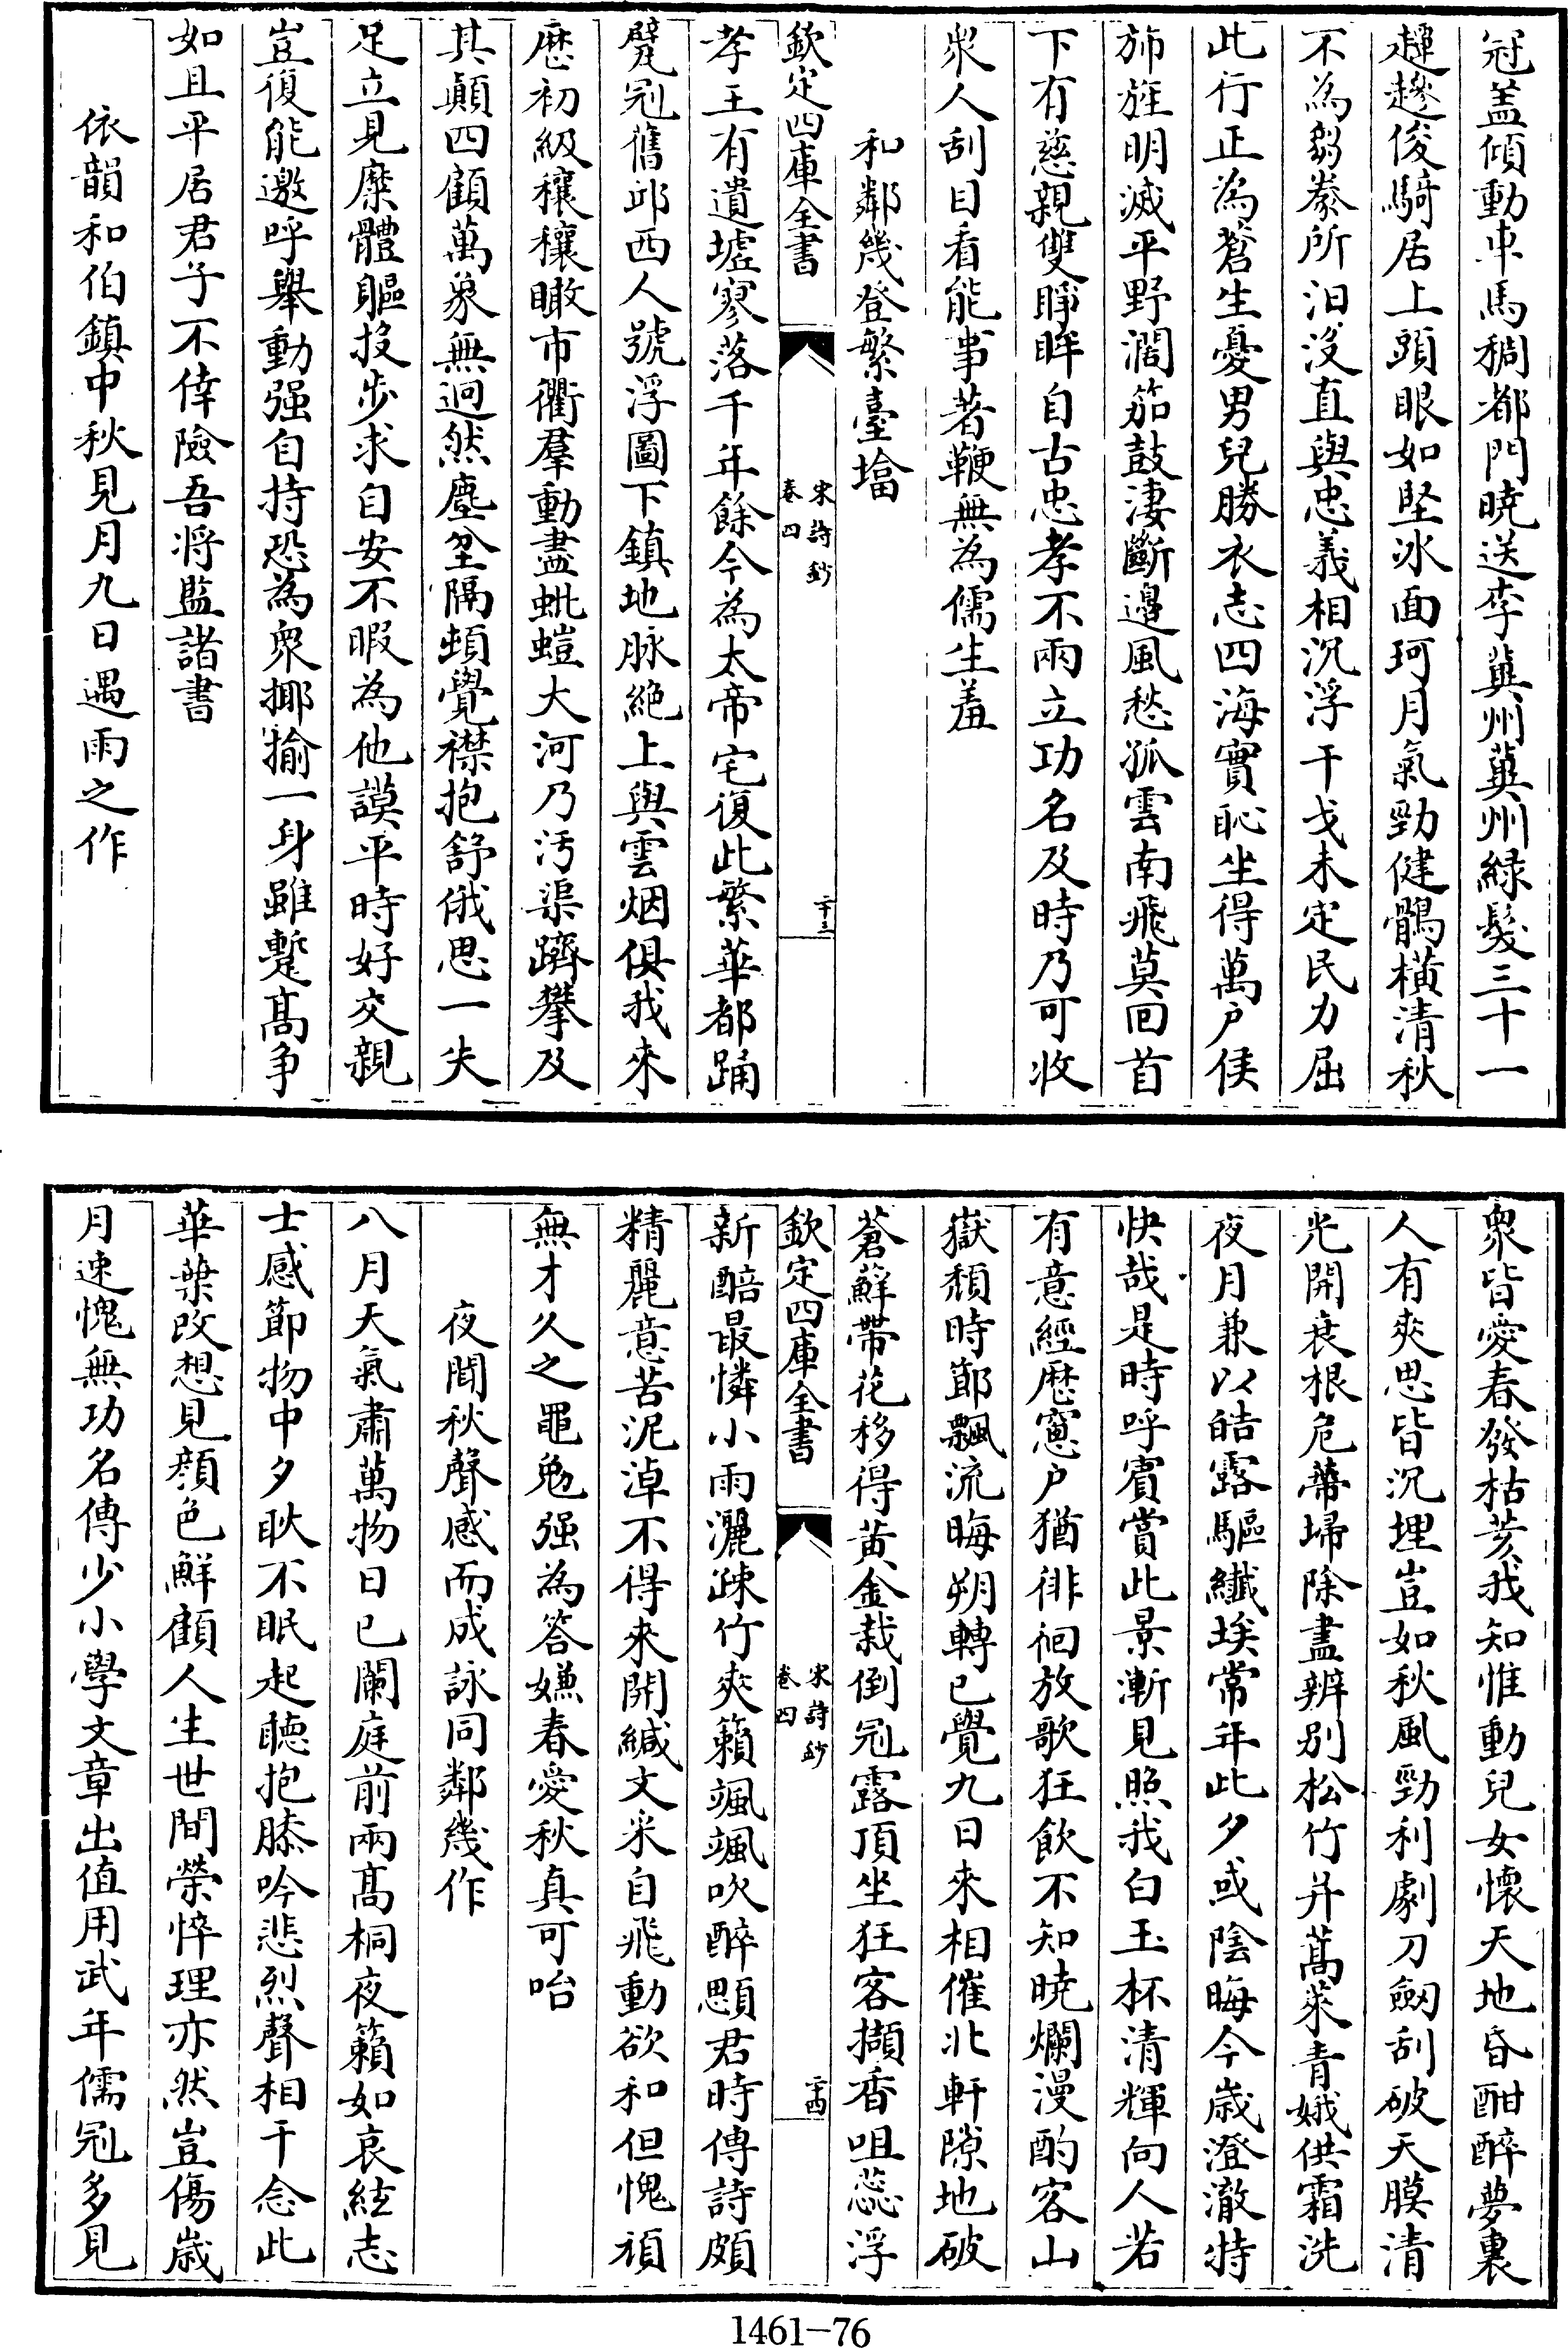 冠盖傾動車馬稠都門曉送李冀州冀州緑髮三十一
趯趯俊騎居上頭眼如堅冰面珂月氣勁健鶻橫清秋
不為芻豢所汩沒直與忠義相沉浮干戈未定民力屈
此行正為蒼生憂男兒勝衣志四海實恥坐得萬户侯
斾旌明滅平野濶笳鼓淒斷邉風愁孤雲南飛莫回首
下有慈親雙睜眸自古忠孝不兩立功名及時乃可收
衆人刮目看能事著鞭無為儒生羞
和鄰幾登繁臺墖
欽定四庫全書
宋詩鈔
卷四
二十三
孝王有遺墟寥落千年餘今為太帝宅復此繁華都踊
甓冠舊邱西人號浮圖下鎮地脉絶上與雲烟俱我來
厯初級穰穰瞰市衢羣動盡蚍螘大河乃汚渠躋攀及
其顛四顧萬象無迥然塵坌隔頓覺襟抱舒俄思一失
足立見糜體軀投步求自安不暇為他謨平時好交親
豈復能邀呼舉動强自持恐為衆揶揄一身雖蹔髙爭
如且平居君子不倖險吾將監諸書
依韻和伯鎮中秋見月九日遇雨之作
衆皆愛春發枯荄我知惟動兒女懷天地昏酣醉夢裏
人有爽思皆沉埋豈如秋風勁利劇刀劒刮破天膜清
光開衰根危蔕埽除盡辨别松竹并蒿萊青娥供霜洗
夜月兼以皓露驅纎埃常年此夕或陰晦今歲澄澈特
快哉是時呼賓賞此景漸見照我白玉杯清輝向人若
有意經厯窻户猶徘徊放歌狂飲不知曉爛漫酌客山
嶽頽時節飄流晦朔轉已覺九日來相催北軒隙地破
蒼蘚帶花移得黄金栽倒冠露頂坐狂客擷香咀蕊浮
欽定四庫全書
宋詩鈔
卷四
二十四
新醅最憐小雨灑疎竹爽籟颯颯吹醉顋君時傳詩頗
精麗意苦泥淖不得來開緘文采自飛動欲和但愧頑
無才久之黽勉强為答嫌春愛秋真可咍
夜聞秋聲感而成詠同鄰幾作
八月天氣肅萬物日已闌庭前兩髙桐夜籟如哀絃志
士感節物中夕耿不眠起聽抱膝吟悲烈聲相干念此
華葉改想見顔色鮮顧人生世間榮悴理亦然豈傷歲
月速愧無功名傳少小學文章出值用武年儒冠多見
1461-76